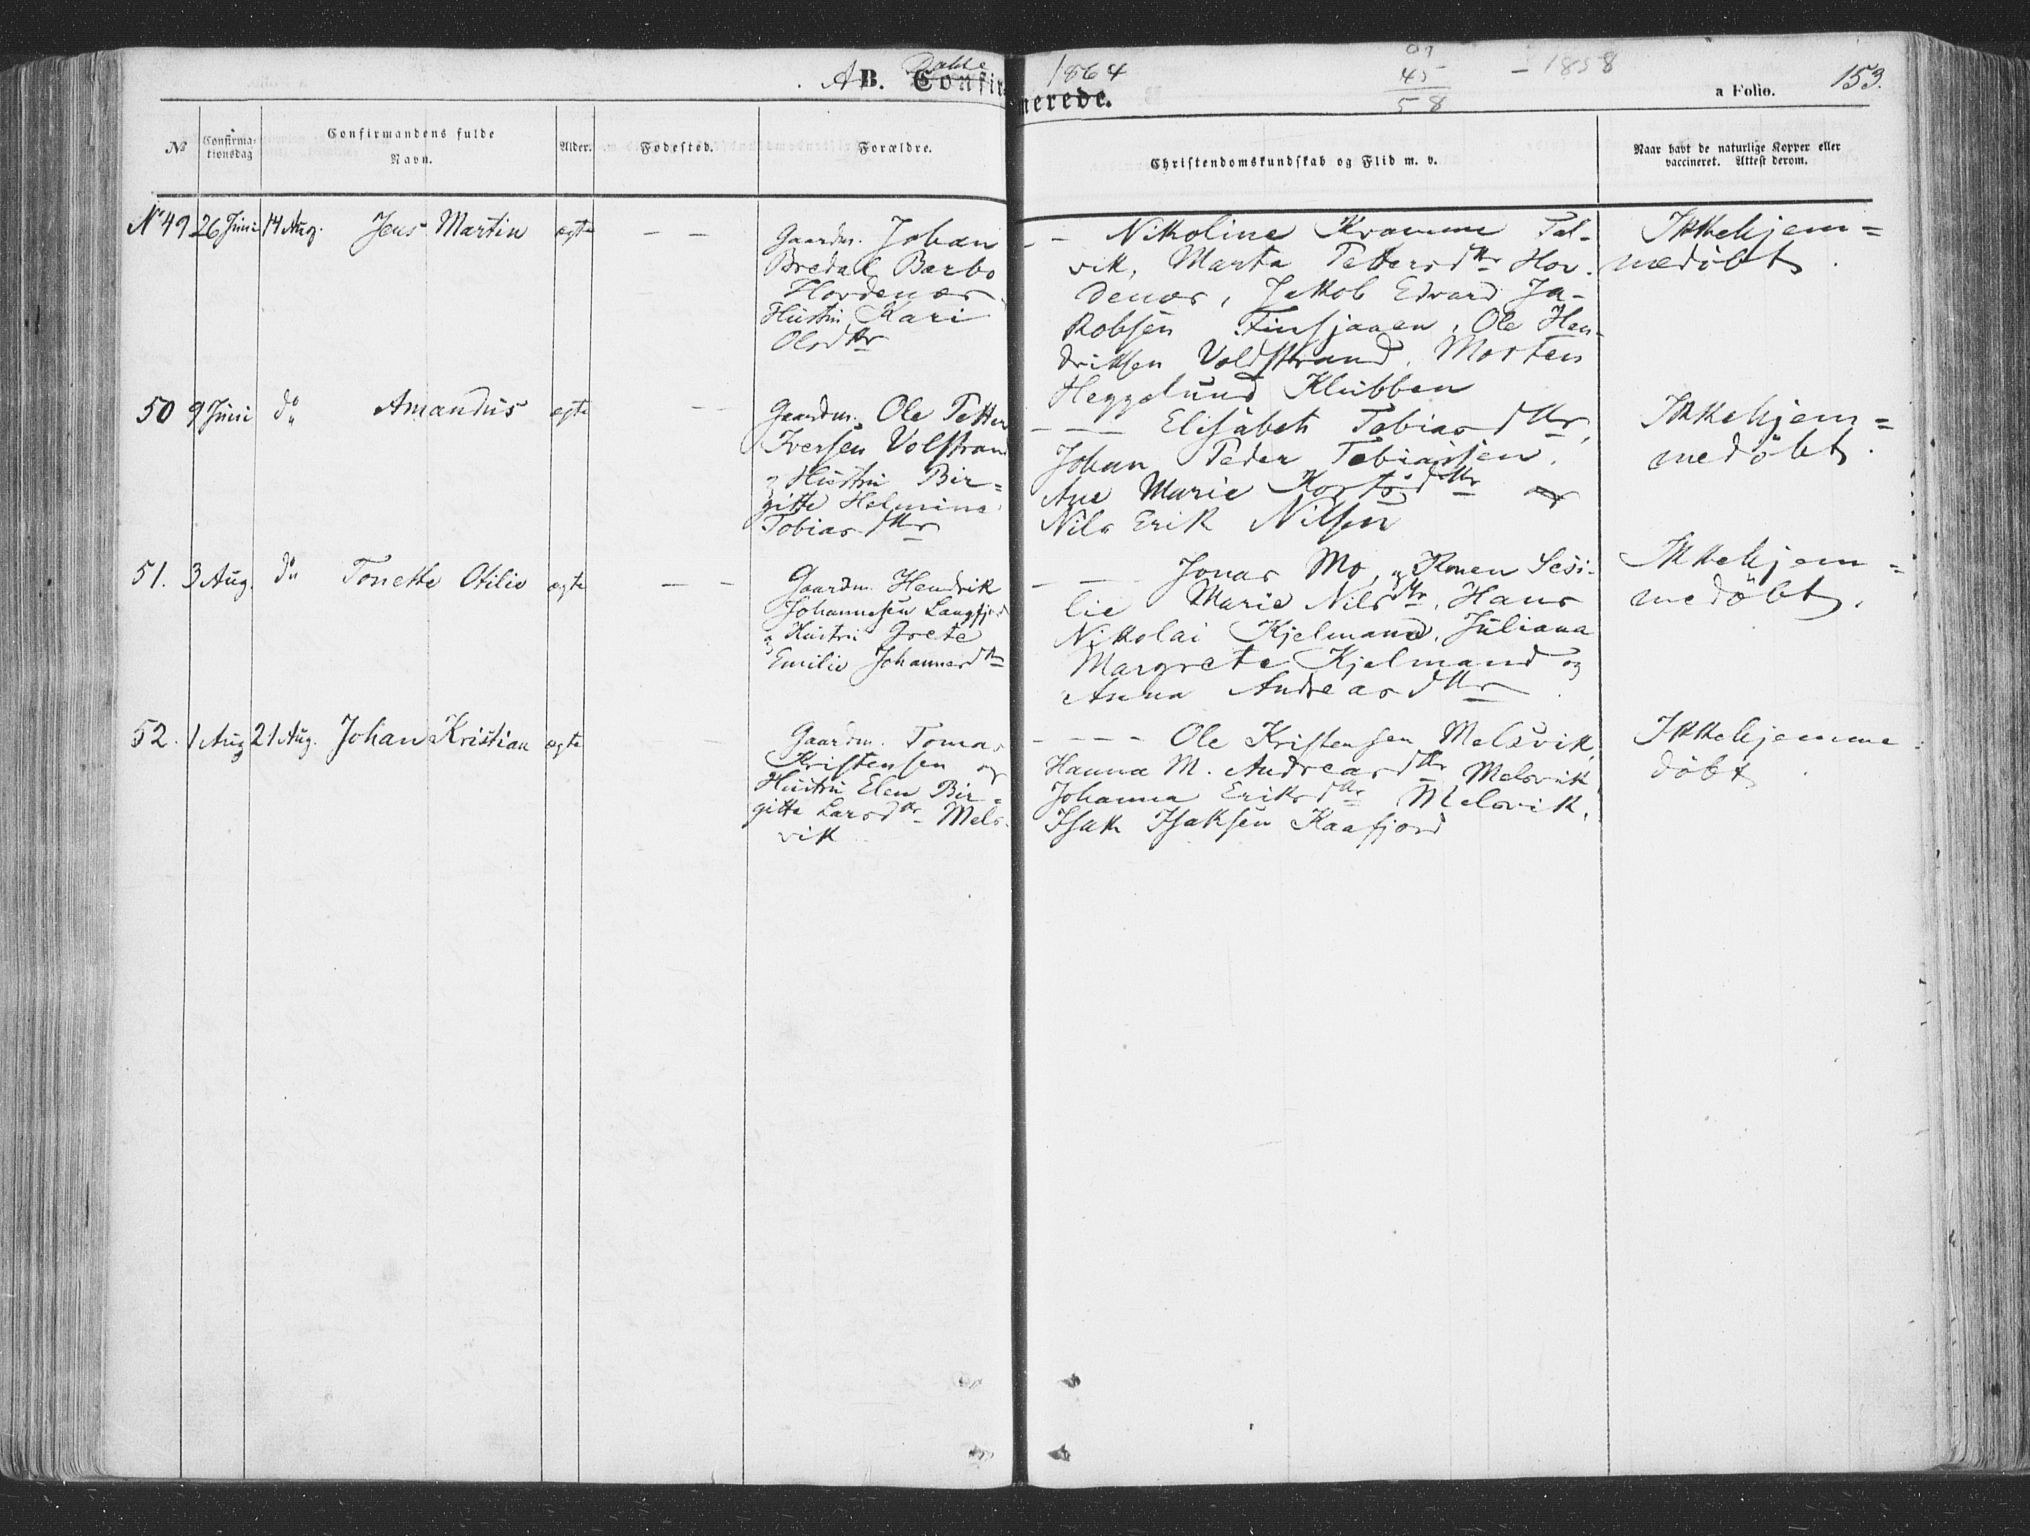 AB. Døbte Confirmerede. 1864
07
45 - 1858
58
a Folio. 153.
No Confirmationsdag Confirmandens fulde Navn. Alder. Fødested. Forældre. Christendomskundskab og Flid m. v. Naar havt de naturlige Kopper eller vaccineret. Attest derom.
No 49 26 Juni 14 Aug. Jens Martin ægte — — Gaardm. Johan
Bredal Barbo
Hordenæs.
Hustru Kari
Olsdtr
— — Nikoline Kramme Tal-
vik, Marta Pettersdtr Hor-
denæs, Jakob Edvard Ja-
kobsen Finsjaaen, Ole Hen-
driksen Voldstrand. Morten
Heggelund Klubben
Ikkehjem=
medøbt.
50 9 Juni do Amandus ægte — — Gaardm. Ole Petter
Iversen Volstran
og Hustru Bir=
gitte Helmine
Tobiasdtr
— — Elisabeth Tobiasdtr,
Johan Peder Tobiassen.
Ane Marie Kortsdtr og
Nils Erik Nilsen
Ikkehjem=
medøbt.
51. 3 Aug. do Tonette Otilie ægte — — Gaardm. Hendrik
Johannesen Langfjord
og Hustru Grete
Emilie Johannesdtr
— — Jonas Mo, og Konen Sesi-
lie Marie Nilsdtr, Hans
Nikolai Kjelmand, Juliana
Margrete Kjelmand og
Anna Andreasdtr.
Ikkehjem=
medøbt.
52. 1 Aug 21 Aug. Johan Kristian ægte — Gaardm. Tomas
Kristensen og
Hustru Elen Bir=
gitte Larsdtr Mels-
vik
— — — Ole Kristensen Melsvik,
Hanna M. Andreasdtr Melsvik
Johanna Eriksdtr Melsvik,
Isak Isaksen Kaafjord
Ikkehjemme
døbt.